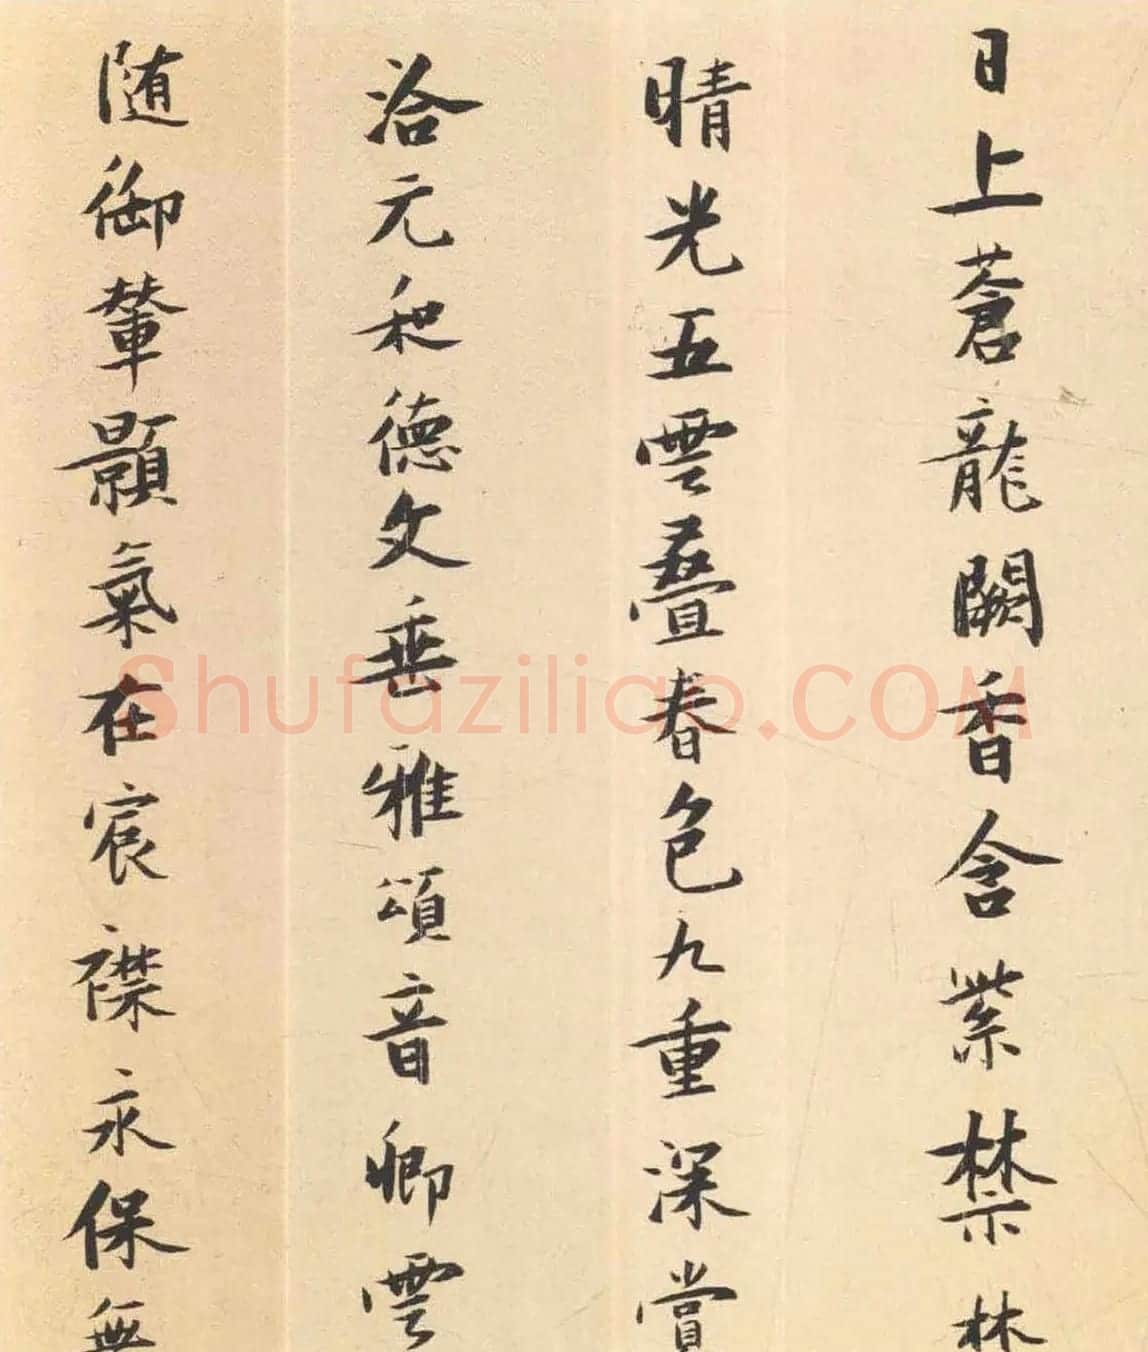 日上蒼龍闕香含紫禁林
晴光五雲疊春色九重深賞
洽元和德文垂雅頌音卿雲
随御輦顥氣在宸襟永保無
shufaziliao.com